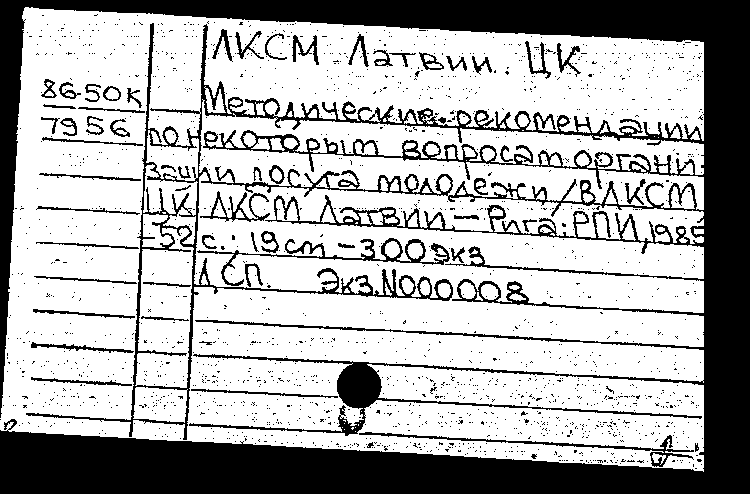 ЛКСМ Латвии. ЦК.
86-50К Методические рекомендации
7956 по некоторым вопросам органи-
зации досуга молодежи /ВЛКСМ
ЦК ЛКСМ Латвии.— Рига: РПИ, 1985
-52 с.; 19 cm.-300экз
ДСП. Экз.N000008.